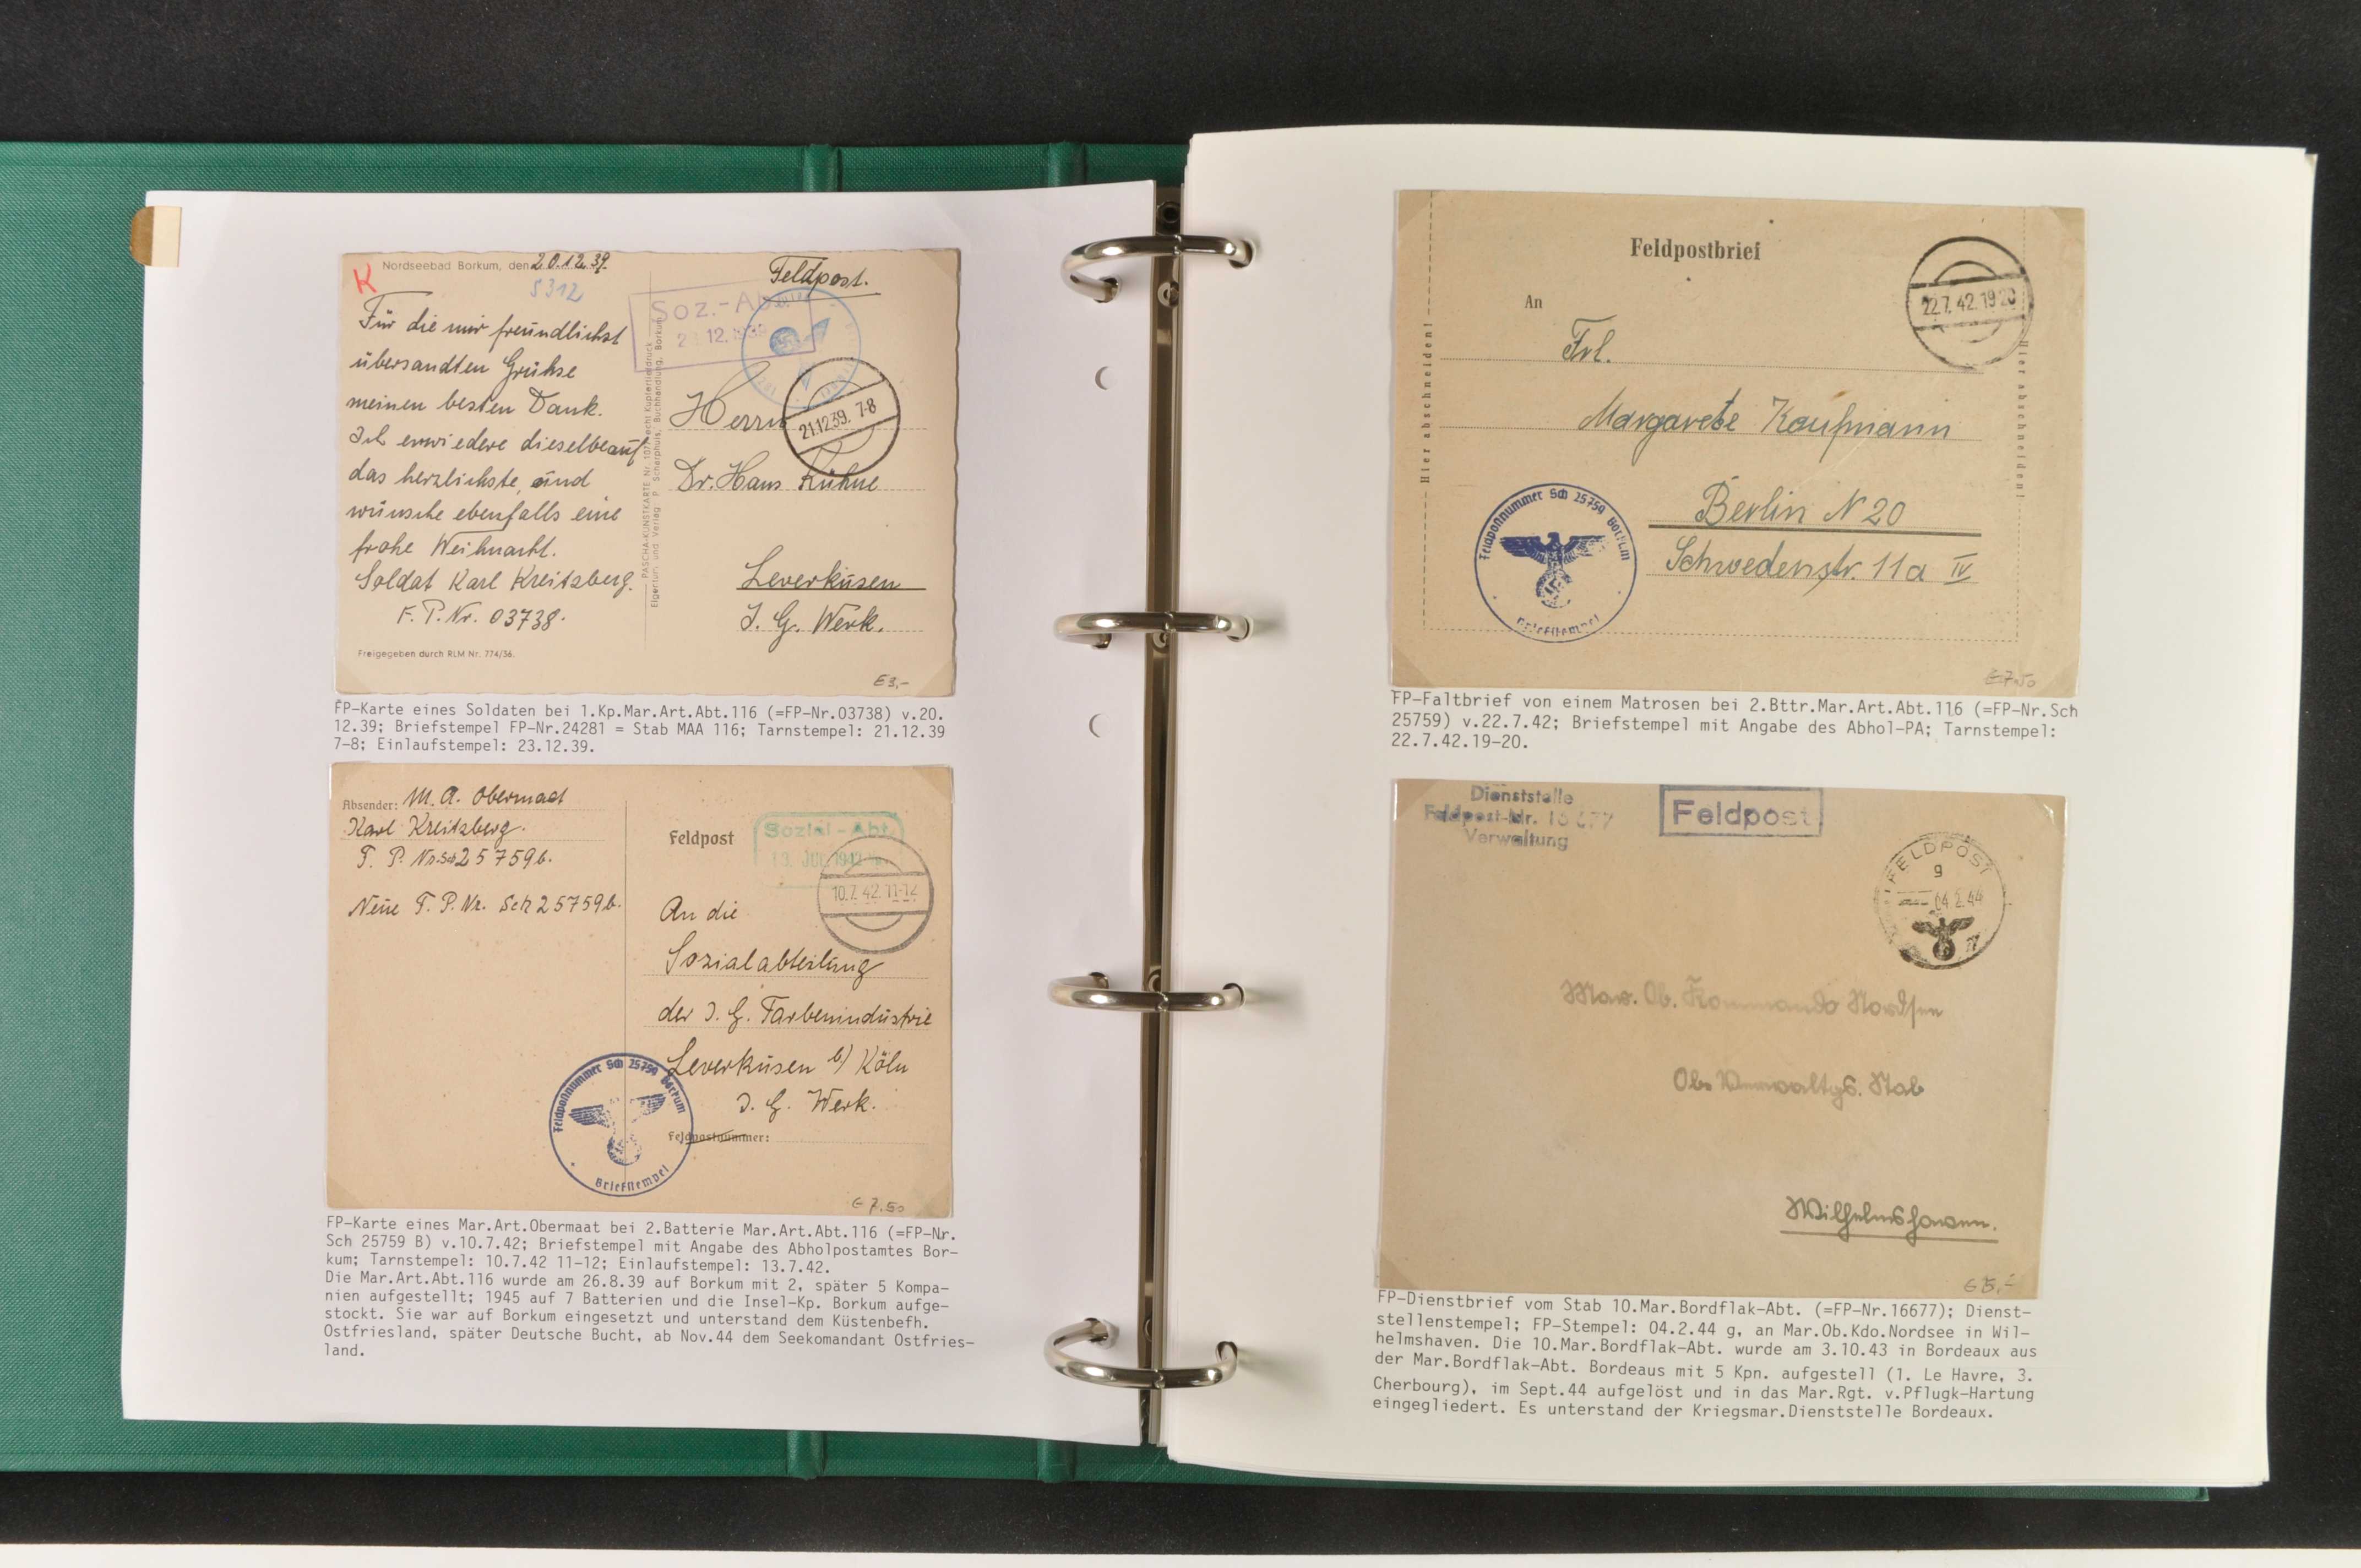 K
Nordseebad Borkum, den 20.12.39.
5312
Für die mir freundlichst
übersandten Grühse
meinen besten Dank.
Ich erwiedere dieselbe auf
das herzlichste, und
wünsche ebenfalls eine
frohe Weihnacht.
Soldat Karl Kreitzberg.
F.P.Nr. 03738.
Freigegeben durch RLM Nr. 774/36.
PASCHA-KUNSTKARTE Nr. Kupfertiefdruck
Eigentum und Verlag P. Scharphuis, Buchhandlung, Borkum
Feldpost.
Soz.-Ab
12.1939
21.12.39. 7-8
Herrn
Dr. Hans Kühne
Leverkusen
I. G. Werk.
€3,-
FP-Karte eines Soldaten bei 1.Kp.Mar.Art.Abt.116 (=FP-Nr.03738) v.20.
12.39; Briefstempel FP-Nr.24281 = Stab MAA 116; Tarnstempel: 21.12.39
7-8; Einlaufstempel: 23.12.39.
Absender: M. A. Obermaat
Karl Kreitzberg.
F. P. Nr. Sch 25759b.
Neue F. P. Nr. Sch 25759b.
Feldpost
Sozial-Abt.
13. JUL 1942
10.7.42.11-12
An die
Sozialabteilung
der I. G. Farbenindustrie
Leverkusen b/ Köln
I. G. Werk.
Feldpostnummer:
Feldpostnummer Sch 25759 Borkum
Briefstempel
€ 7.50
FP-Karte eines Mar.Art.Obermaat bei 2.Batterie Mar.Art.Abt.116 (=FP-Nr.
Sch 25759 B) v.10.7.42; Briefstempel mit Angabe des Abholpostamtes Bor-
kum; Tarnstempel: 10.7.42 11-12; Einlaufstempel: 13.7.42.
Die Mar.Art.Abt.116 wurde am 26.8.39 auf Borkum mit 2, später 5 Kompa-
nien aufgestellt; 1945 auf 7 Batterien und die Insel-Kp. Borkum aufge-
stockt. Sie war auf Borkum eingesetzt und unterstand dem Küstenbefh.
Ostfriesland, später Deutsche Bucht, ab Nov.44 dem Seekomandant Ostfries-
land.
Feldpostbrief
22.7.42.19 20
An
Frl.
Margarete Kaufmann
Berlin N 20
Schwedenstr. 11a IV
Hier abschneiden!
Hier abschneiden!
Feldpostnummer Sch 25759 Borkum
Briefstempel
€ 7.50
FP-Faltbrief von einem Matrosen bei 2.Bttr.Mar.Art.Abt.116 (=FP-Nr.Sch
25759) v.22.7.42; Briefstempel mit Angabe des Abhol-PA; Tarnstempel:
22.7.42.19-20.
Dienststelle
Feldpost-Nr. 16677
Verwaltung
Feldpost
FELDPOST
g
04.2.44
Mar. Ob. Kommando Nordsee
Ob. Verwaltgs. Stab
Wilhelmshaven.
€ 5,-
FP-Dienstbrief vom Stab 10.Mar.Bordflak-Abt. (=FP-Nr.16677); Dienst-
stellenstempel; FP-Stempel: 04.2.44 g, an Mar.Ob.Kdo.Nordsee in Wil-
helmshaven. Die 10.Mar.Bordflak-Abt. wurde am 3.10.43 in Bordeaux aus
der Mar.Bordflak-Abt. Bordeaus mit 5 Kpn. aufgestell (1. Le Havre, 3.
Cherbourg), im Sept.44 aufgelöst und in das Mar.Rgt. v.Pflugk-Hartung
eingegliedert. Es unterstand der Kriegsmar.Dienststelle Bordeaux.